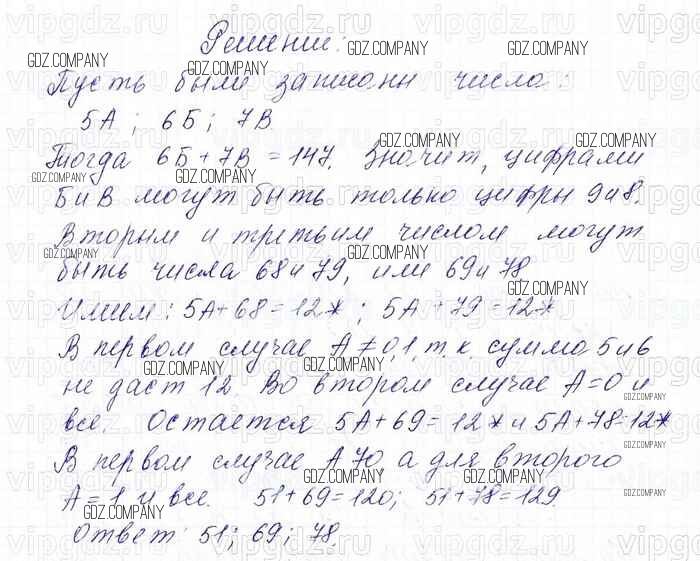 Решение:
Пусть были записаны числа:
5А; 6Б; 7В
Тогда 6Б+7В=147. Значит, цифрами
Б и В могут быть только цифры 9 и 8.
Вторым и третьим числом могут
быть числа 68 и 79, или 69 и 78
Имеем: 5А+68=12*; 5А+79=12*
В первом случае А≠0,1, т.к. сумма 5 и 6
не даст 12 Во втором случае А=0 и
все. Остается 5А+69=12* и 5А+78=12*
В первом случае А70 а для второго
А=1 и все. 51+69=120; 51+78=129.
Ответ: 51; 69; 78.
GDZ.COMPANY
vipgdz.ru